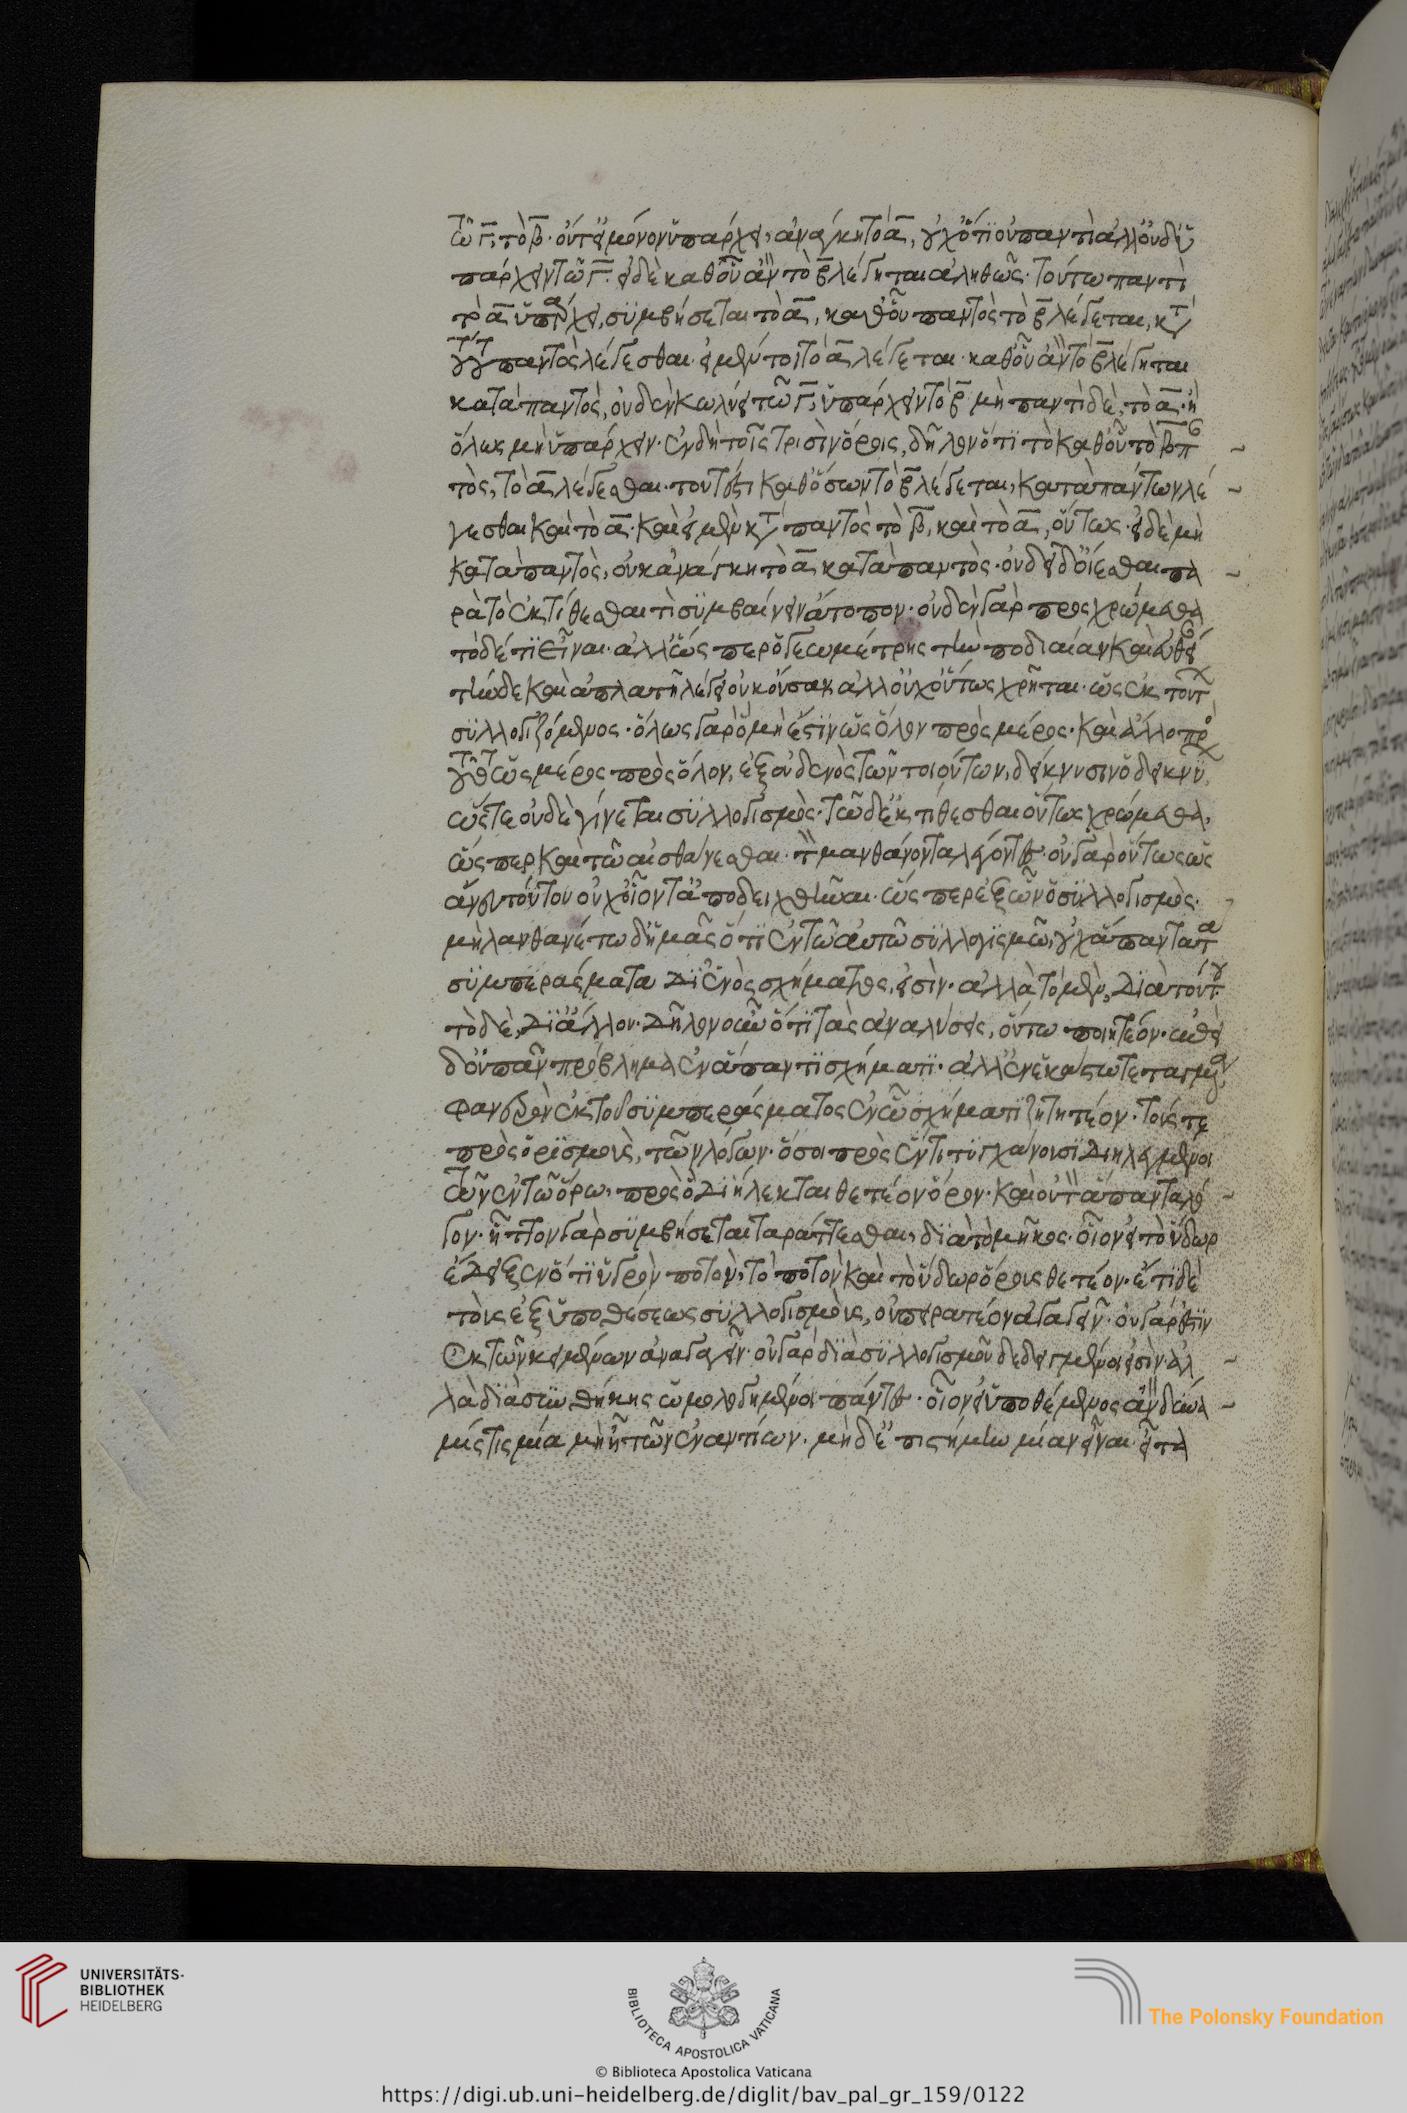 τῶ Γ, τὸ Β· οὔτ' εἰ μόνον ὑπάρχει, ἀνάγκη τὸ Α, οὐχ ὅτι οὐ παντὶ ἀλλ' οὐδ' ὑ
πάρχειν τῶ Γ. εἰ δὲ καθ' οὗ ἂν τὸ Β λέγηται ἀληθῶς· τούτω παντὶ
τὸ Α ὑπάρχει, συμβήσεται τὸ Α, καθ' οὗ παντὸς τὸ Β λέγεται, κατὰ
τούτου παντὸς λέγεσθαι· εἰ μέντοι τὸ Α λέγεται· καθ' οὗ ἂν τὸ Β λέγηται
κατὰ παντὸς, οὐδὲν κωλύει τῶ Γ, ὑπάρχειν τὸ Β μὴ παντὶ δὲ, τὸ Α· ἢ
ὅλως μὴ ὑπάρχειν· ἐν δὴ τοῖς τρισὶν ὅροις, δῆλον ὅτι τὸ καθ' οὗ τὸ Β παν
τὸς, τὸ Α λέγεσθαι· τοῦτ' ἔστι καθ' ὅσων τὸ Β λέγεται, κατὰ πάντων λέ
γεσθαι καὶ τὸ Α· καὶ εἰ μὲν κατὰ παντὸς τὸ Β, καὶ τὸ Α, οὕτως· εἰ δὲ μὴ
κατὰ παντὸς, οὐκ ἀνάγκη τὸ Α κατὰ παντὸς· οὐ δεῖ δ' οἴεσθαι πα
ρὰ τὸ ἐκτίθεσθαι τὶ συμβαίνειν ἄτοπον· οὐδὲν γὰρ προσχρώμεθα
τὸ δέ τι εἶναι· ἀλλ' ὥσπερ ὁ γεωμέτρης τὴν ποδιαίαν καὶ εὐθεῖαν
τήνδε καὶ ἀπλατῆ λέγει οὐκ οὔσας ἀλλ' οὐχ οὕτως χρῆται· ὡς ἐκ τούτων
συλλογιζόμενος· ὅλως γὰρ ὃ μὴ ἔστιν ὡς ὅλον πρὸς μέρος· καὶ ἄλλο πρὸς
τοῦτο ὡς μέρος πρὸς ὅλον, ἐξ οὐδενὸς τῶν τοιούτων, δείκνυσιν ὁ δεικνύων,
ὥστε οὐδὲ γίνεται συλλογισμὸς· τῶ δ' ἐκτίθεσθαι οὕτως χρώμεθα,
ὥσπερ καὶ τῶ αἰσθάνεσθαι· τὸν μανθάνοντα λέγοντες· οὐ γὰρ οὕτως ὡς
ἄνευ τούτου οὐχ οἷόν τ' ἀποδειχθῆναι· ὥσπερ ἐξ ὧν ὁ συλλογισμὸς·
μὴ λανθανέτω δ' ἡμᾶς ὅτι ἐν τῶ αὐτῶ συλλογισμῶ, οὐχ ἅπαντα τὰ
συμπεράσματα δι' ἑνὸς σχήματός εἰσιν· ἀλλὰ τὸ μὲν, διὰ τούτου
τὸ δὲ, δι' ἄλλου· δῆλον οὖν ὅτι τὰς ἀναλύσεις, οὕτω ποιητέον· ἐπεὶ
δ' οὐ πᾶν πρόβλημα ἐν ἅπαντι σχήματι· ἀλλ' ἐν ἑκάστω τεταγμένα
φανερὸν ἐκ τοῦ συμπεράσματος ἐν ὧ σχήματι ζητητέον· τούς τε
πρὸς ὁρισμοὺς, τῶν λόγων· ὅσοι πρὸς ἕν τι τυγχάνουσι διειλεγμένοι
τῶν ἐν τῶ ὅρω, πρὸς ὃ διείλεκται θετέον ὅρον· καὶ οὐ τὸν ἅπαντα λό
γον· ἧττον γὰρ συμβήσεται ταράττεσθαι, διὰ τὸ μῆκος· οἷον εἰ τὸ ὕδωρ
ἔδειξεν ὅτι ὑγρὸν ποτὸν, τὸ ποτὸν καὶ τὸ ὕδωρ ὅρους θετέον· ἔτι δὲ
τοὺς ἐξ ὑποθέσεως συλλογισμοὺς, οὐ πειρατέον ἀγαγεῖν· οὐ γὰρ ἔστιν
ἐκ τῶν κειμένων ἀναγαγεῖν· οὐ γὰρ διὰ συλλογισμοῦ δεδειγμένοι εἰσὶν· ἀλ
λὰ διὰ συνθήκης ὡμολογημένοι πάντες· οἷον εἰ ὑποθέμενος ἂν δύνα
μίς τις μία μὴ ἦ τῶν ἐναντίων· μὴ δ' ἐπιστήμην μίαν εἶναι· εἶτα
UNIVERSITÄTS-
BIBLIOTHEK
HEIDELBERG
BIBLIOTECA APOSTOLICA VATICANA
The Polonsky Foundation
© Biblioteca Apostolica Vaticana
https://digi.ub.uni-heidelberg.de/diglit/bav_pal_gr_159/0122